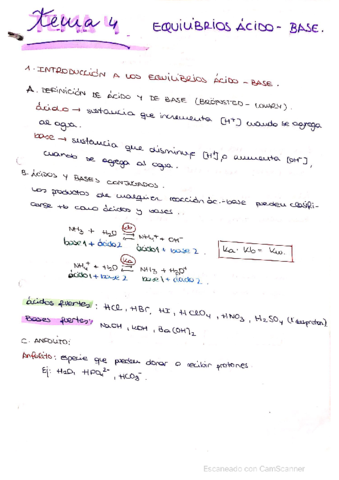 Tema 4
EQUILIBRIOS ÁCIDO-BASE.
1. INTRODUCCIÓN A LOS EQUILIBRIOS ÁCIDO-BASE.
A. DEFINICIÓN DE ÁCIDO Y DE BASE (BRÖNSTED-LOWRY).
ácido → sustancia que incrementa [H⁺] cuando se agrega
al agua.
base → sustancia que disminuye [H⁺], o aumenta [OH⁻],
cuando se agrega al agua.
B. ÁCIDOS Y BASES CONJUGADOS.
Los productos de cualquier reacción ác-base pueden clasifi-
carse tb como ácidos y bases.
NH₃ + H₂O ⇌ Kb NH₄⁺ + OH⁻
base1 + ácido2 ácido1 + base2.
Ka · Kb = Kw.
NH₄⁺ + H₂O ⇌ Ka NH₃ + H₃O⁺
ácido1 + base2 base1 + ácido2.
ácidos fuertes: HCl, HBr, HI, HClO₄, HNO₃, H₂SO₄
Bases fuertes: NaOH, KOH, Ba(OH)₂
C. ANFOLITO:
Anfolito: especie que pueden donar o recibir protones.
Ej: H₂O, HPO₄²⁻, HCO₃⁻.
Escaneado con CamScanner